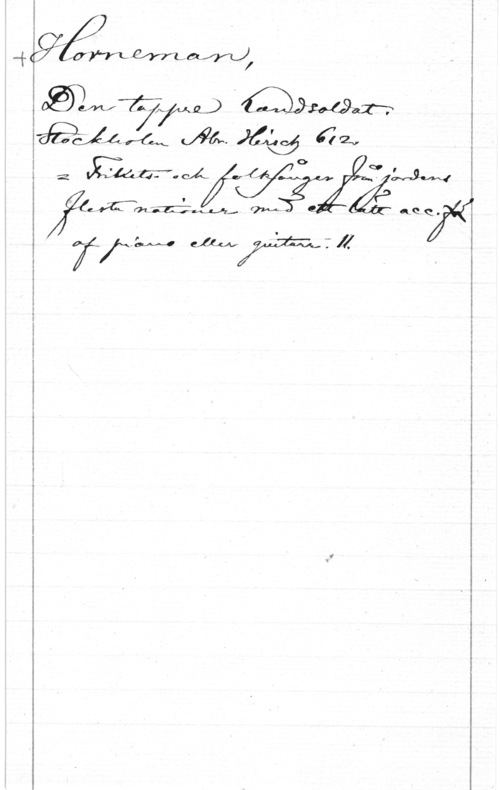 + Horneman,
Den tappre Landsoldat.
Stockholm Abr. Hirsch 612.
= Frihets- och folksånger från jordens
flesta nationer med ett lätt acc.
af piano eller guitarr. 11.